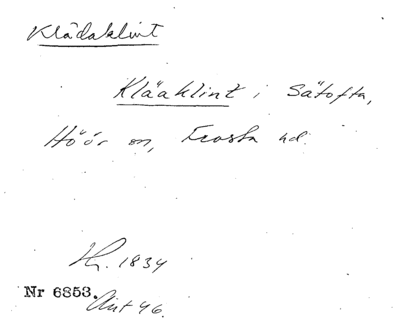 Klädaklint
Kläaklint i Sätofta,
Höör sn, Frosta hd.
Hr. 1834
Nr 6853.
Ant 46.